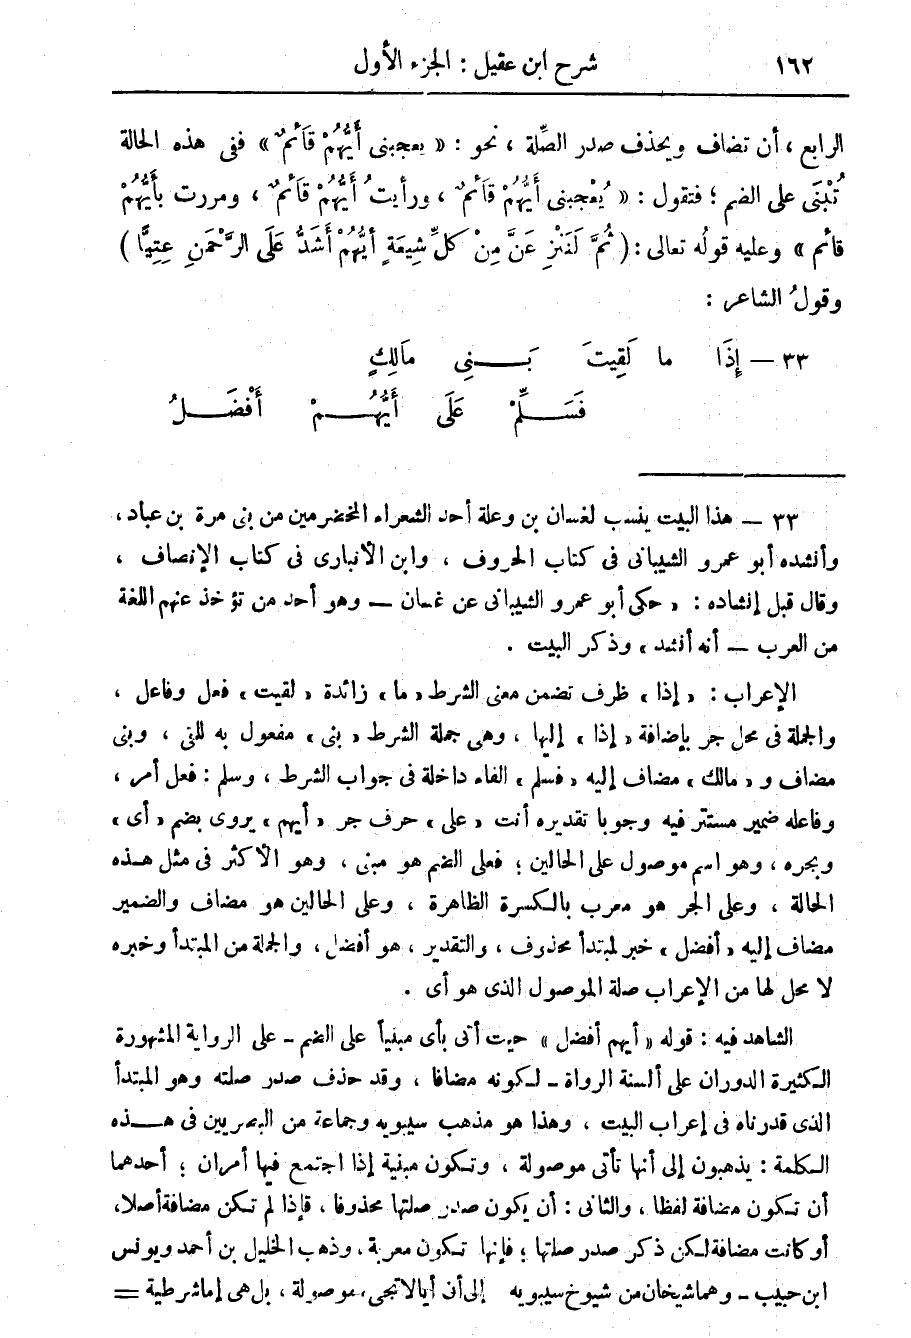 ١٦٢ شرح ابن عقيل : الجزء الأول
الرابع ، أن تضاف ويحذف صدر الصِّلة ، نحو : « يعجبنى أَيُّهُمْ قَائمٌ » ففى هذه الحالة
تُبْنَى على الضم ؛ فتقول : « يُعْجبنى أَيُّهُمْ قَائمٌ ، ورأيتُ أَيُّهُمْ قَائمٌ ، ومررت بأَيُّهُمْ
قائم » وعليه قولُه تعالى : ( ثُمَّ لَنَنْزِ عَنَّ مِنْ كلِّ شِيعَةٍ أَيُّهُمْ أَشَدُّ عَلَى الرَّحْمَنِ عِتِيًّا )
وقولُ الشاعر :
٣٣ — إِذَا ما لَقِيتَ بَـنِى مَالِكٍ
فَسَـلِّمْ عَلَى أَيُّهُـمْ أَفْضَـلُ
٣٣ — هذا البيت ينسب لغسان بن وعلة أحد الشعراء المخضرمين من بنى مرة بن عباد ،
وأنشده أبو عمرو الشيبانى فى كتاب الحروف ، وابن الأنبارى فى كتاب الإنصاف ،
وقال قبل إنشاده : « حكى أبو عمرو الشيبانى عن غسان — وهو أحد من تؤخذ عنهم اللغة
من العرب — أنه أنشد » وذكر البيت .
الإعراب : « إذا » ظرف تضمن معنى الشرط « ما » زائدة « لقيت » فعل وفاعل ،
والجملة فى محل جر بإضافة « إذا » إليها ، وهى جملة الشرط « بنى » مفعول به للقى ، وبنى
مضاف و « مالك » مضاف إليه « فسلم » الفاء داخلة فى جواب الشرط ، وسلم : فعل أمر ،
وفاعله ضمير مستتر فيه وجوبا تقديره أنت « على » حرف جر « أيهم » يروى بضم « أى »
وبجره ، وهو اسم موصول على الحالين ؛ فعلى الضم هو مبنى ، وهو الأكثر فى مثل هـذه
الحالة ، وعلى الجر هو معرب بالكسرة الظاهرة ، وعلى الحالين هو مضاف والضمير
مضاف إليه « أفضل » خبر لمبتدأ محذوف ، والتقدير ، هو أفضل ، والجملة من المبتدأ وخبره
لا محل لها من الإعراب صلة الموصول الذى هو أى .
الشاهد فيه : قوله « أيهم أفضل » حيث أتى بأى مبنياً على الضم - على الرواية المشهورة
الكثيرة الدوران على ألسنة الرواة - لكونه مضافا ، وقد حذف صدر صلته وهو المبتدأ
الذى قدرناه فى إعراب البيت ، وهذا هو مذهب سيبويه وجماعة من البصريين فى هـذه
الكلمة : يذهبون إلى أنها تأتى موصولة ، وتكون مبنية إذا اجتمع فيها أمران ؛ أحدهما
أن تكون مضافة لفظا ، والثانى : أن يكون صدر صلتها محذوفا ، فإذا لم تكن مضافة أصلا ،
أو كانت مضافة لكن ذكر صدر صلتها ؛ فإنها تكون معربة ، وذهب الخليل بن أحمد ويونس
ابن حبيب - وهما شيخان من شيوخ سيبويه إلى أن أيا لا تجىء موصولة ، بل هى إما شرطية =